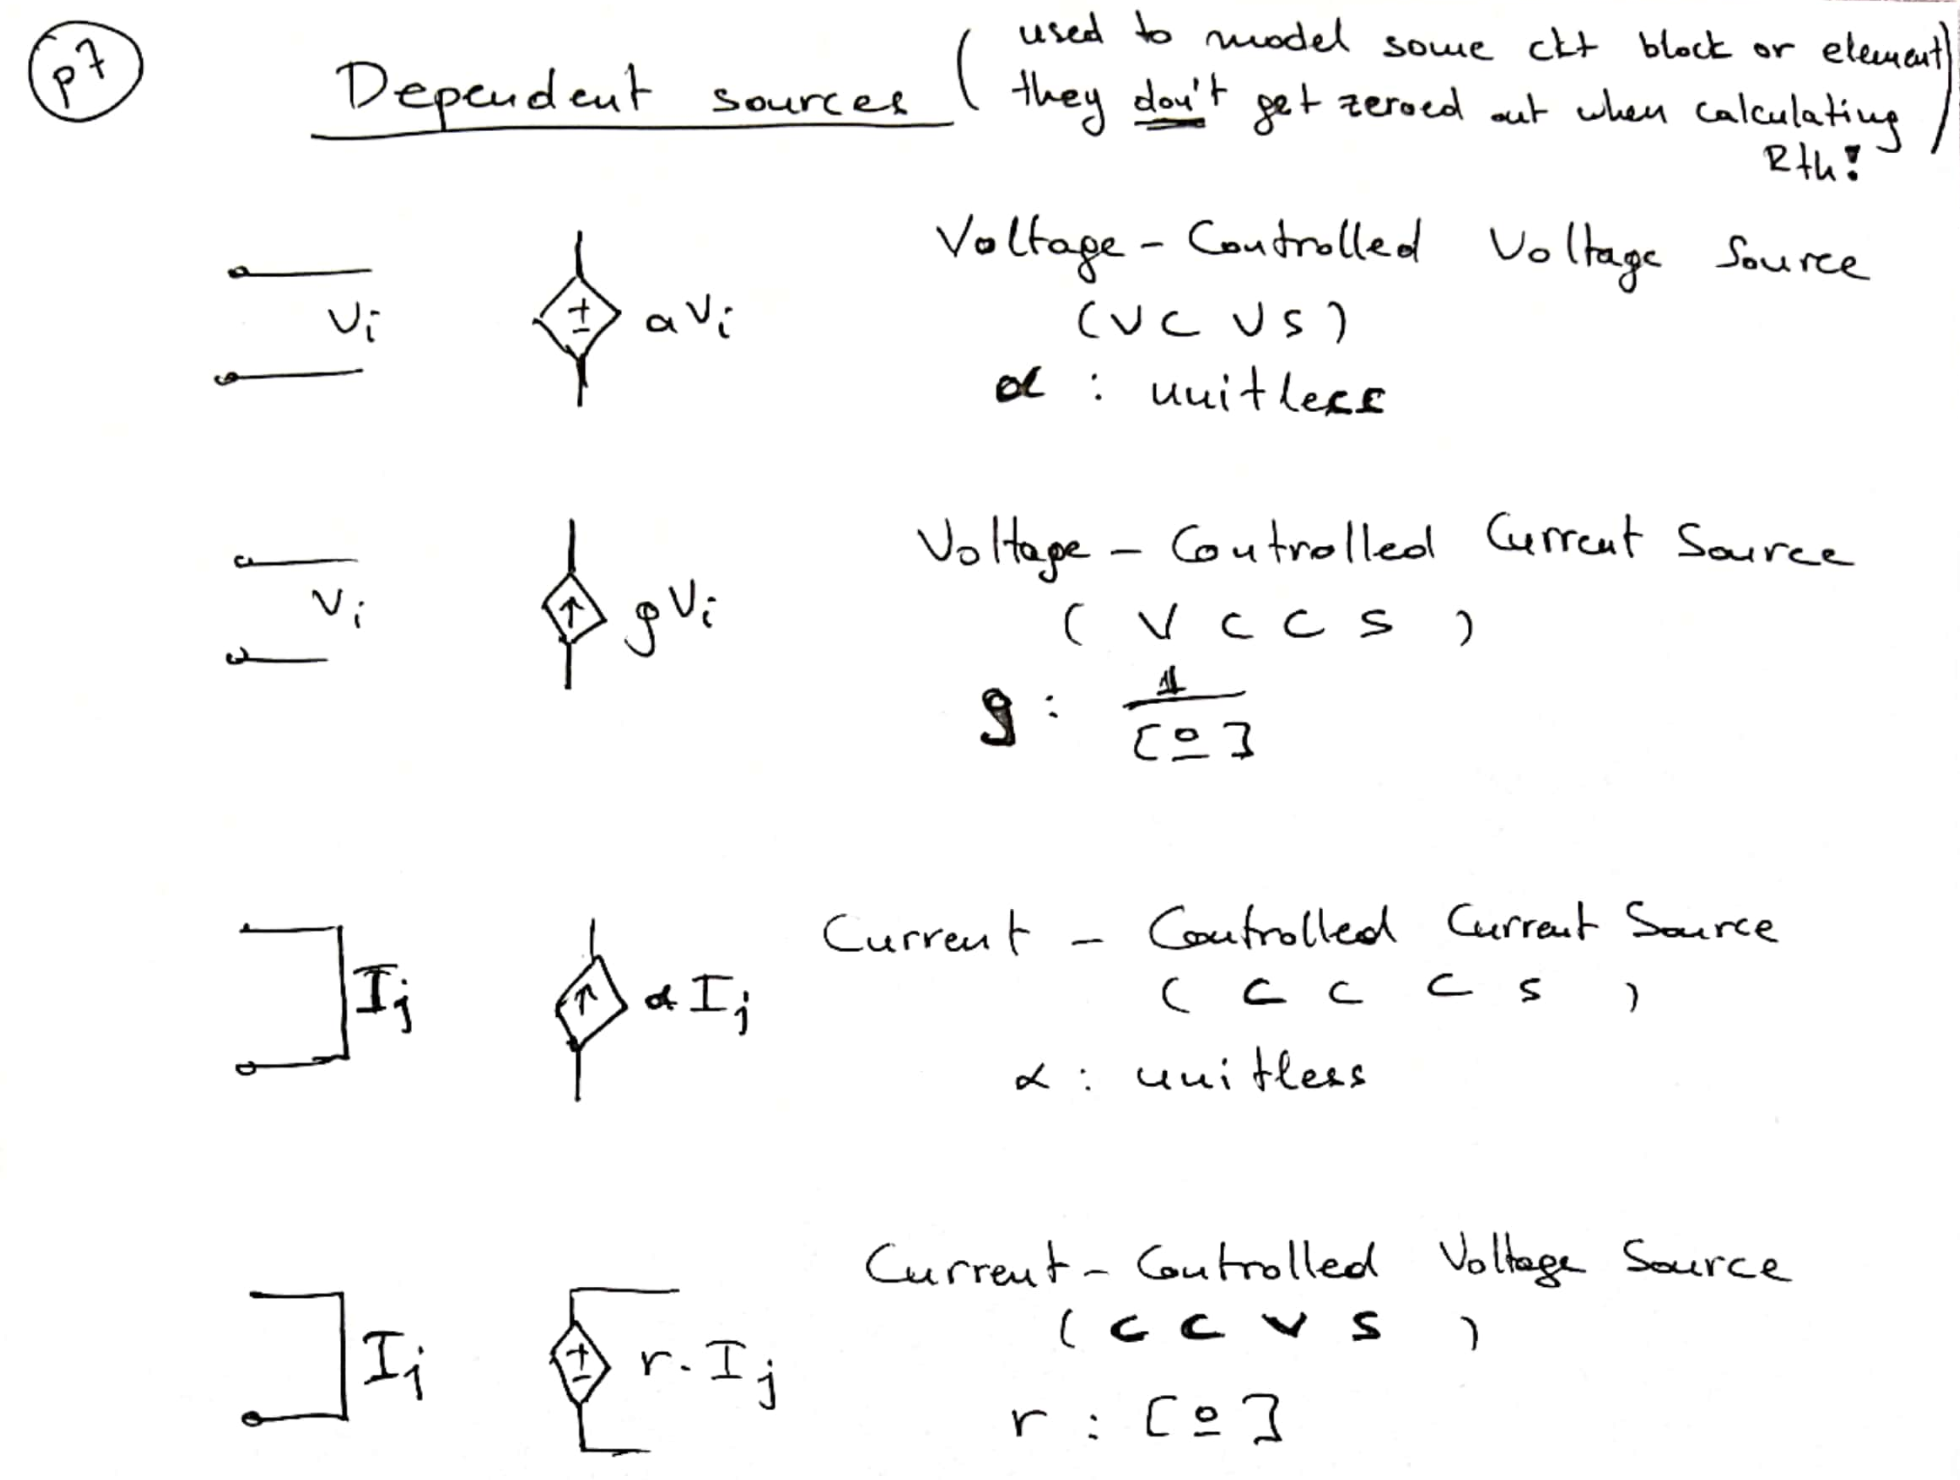 p7
Dependent sources (used to model some ckt block or element
they don't get zeroed out when calculating
Rth!)
Voltage - Controlled Voltage Source
Vi ± aVi (VCVS)
α : unitless
Voltage - Controlled Current Source
Vi gVi (VCCS)
g : 1
[Ω]
Current - Controlled Current Source
Ij αIj (CCCS)
α : unitless
Current - Controlled Voltage Source
(CCVS)
Ij ± r.Ij
r : [Ω]